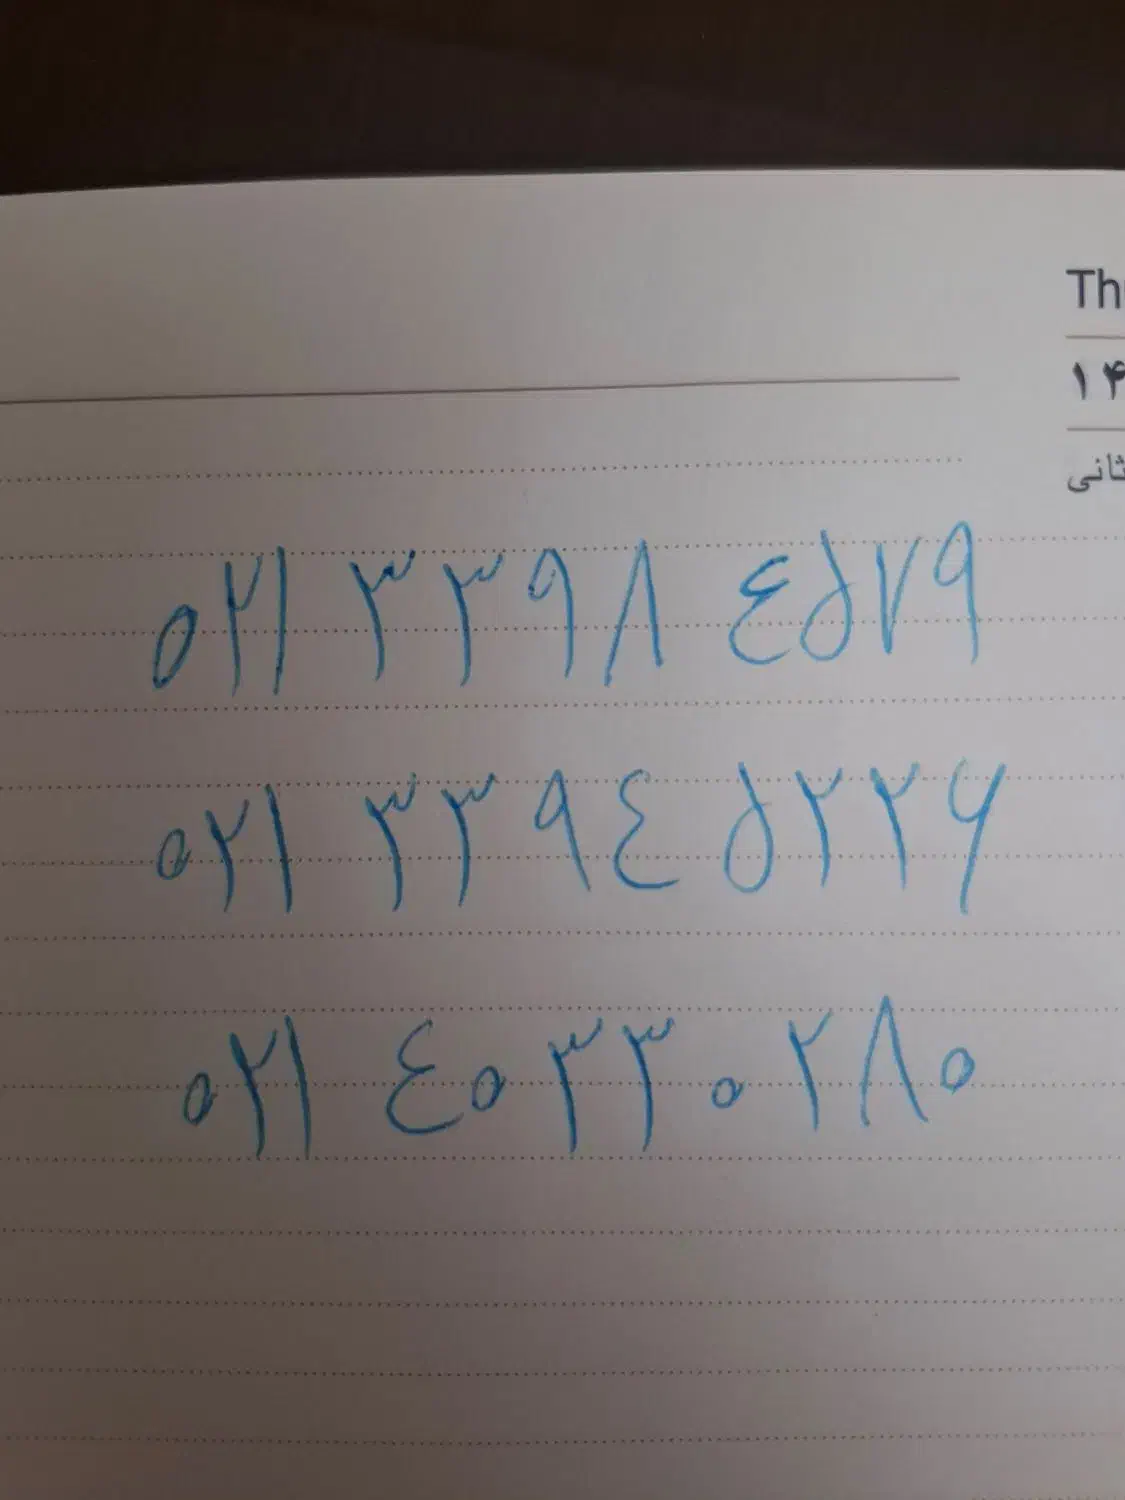 Th
۱۴
ثانی
۰۲۱ ۳۳۹۸ ٤۵۷۹
۰۲۱ ۳۳۹٤ ۵۲۲۶
۰۲۱ ٤۰۳۳۰۲۸۰